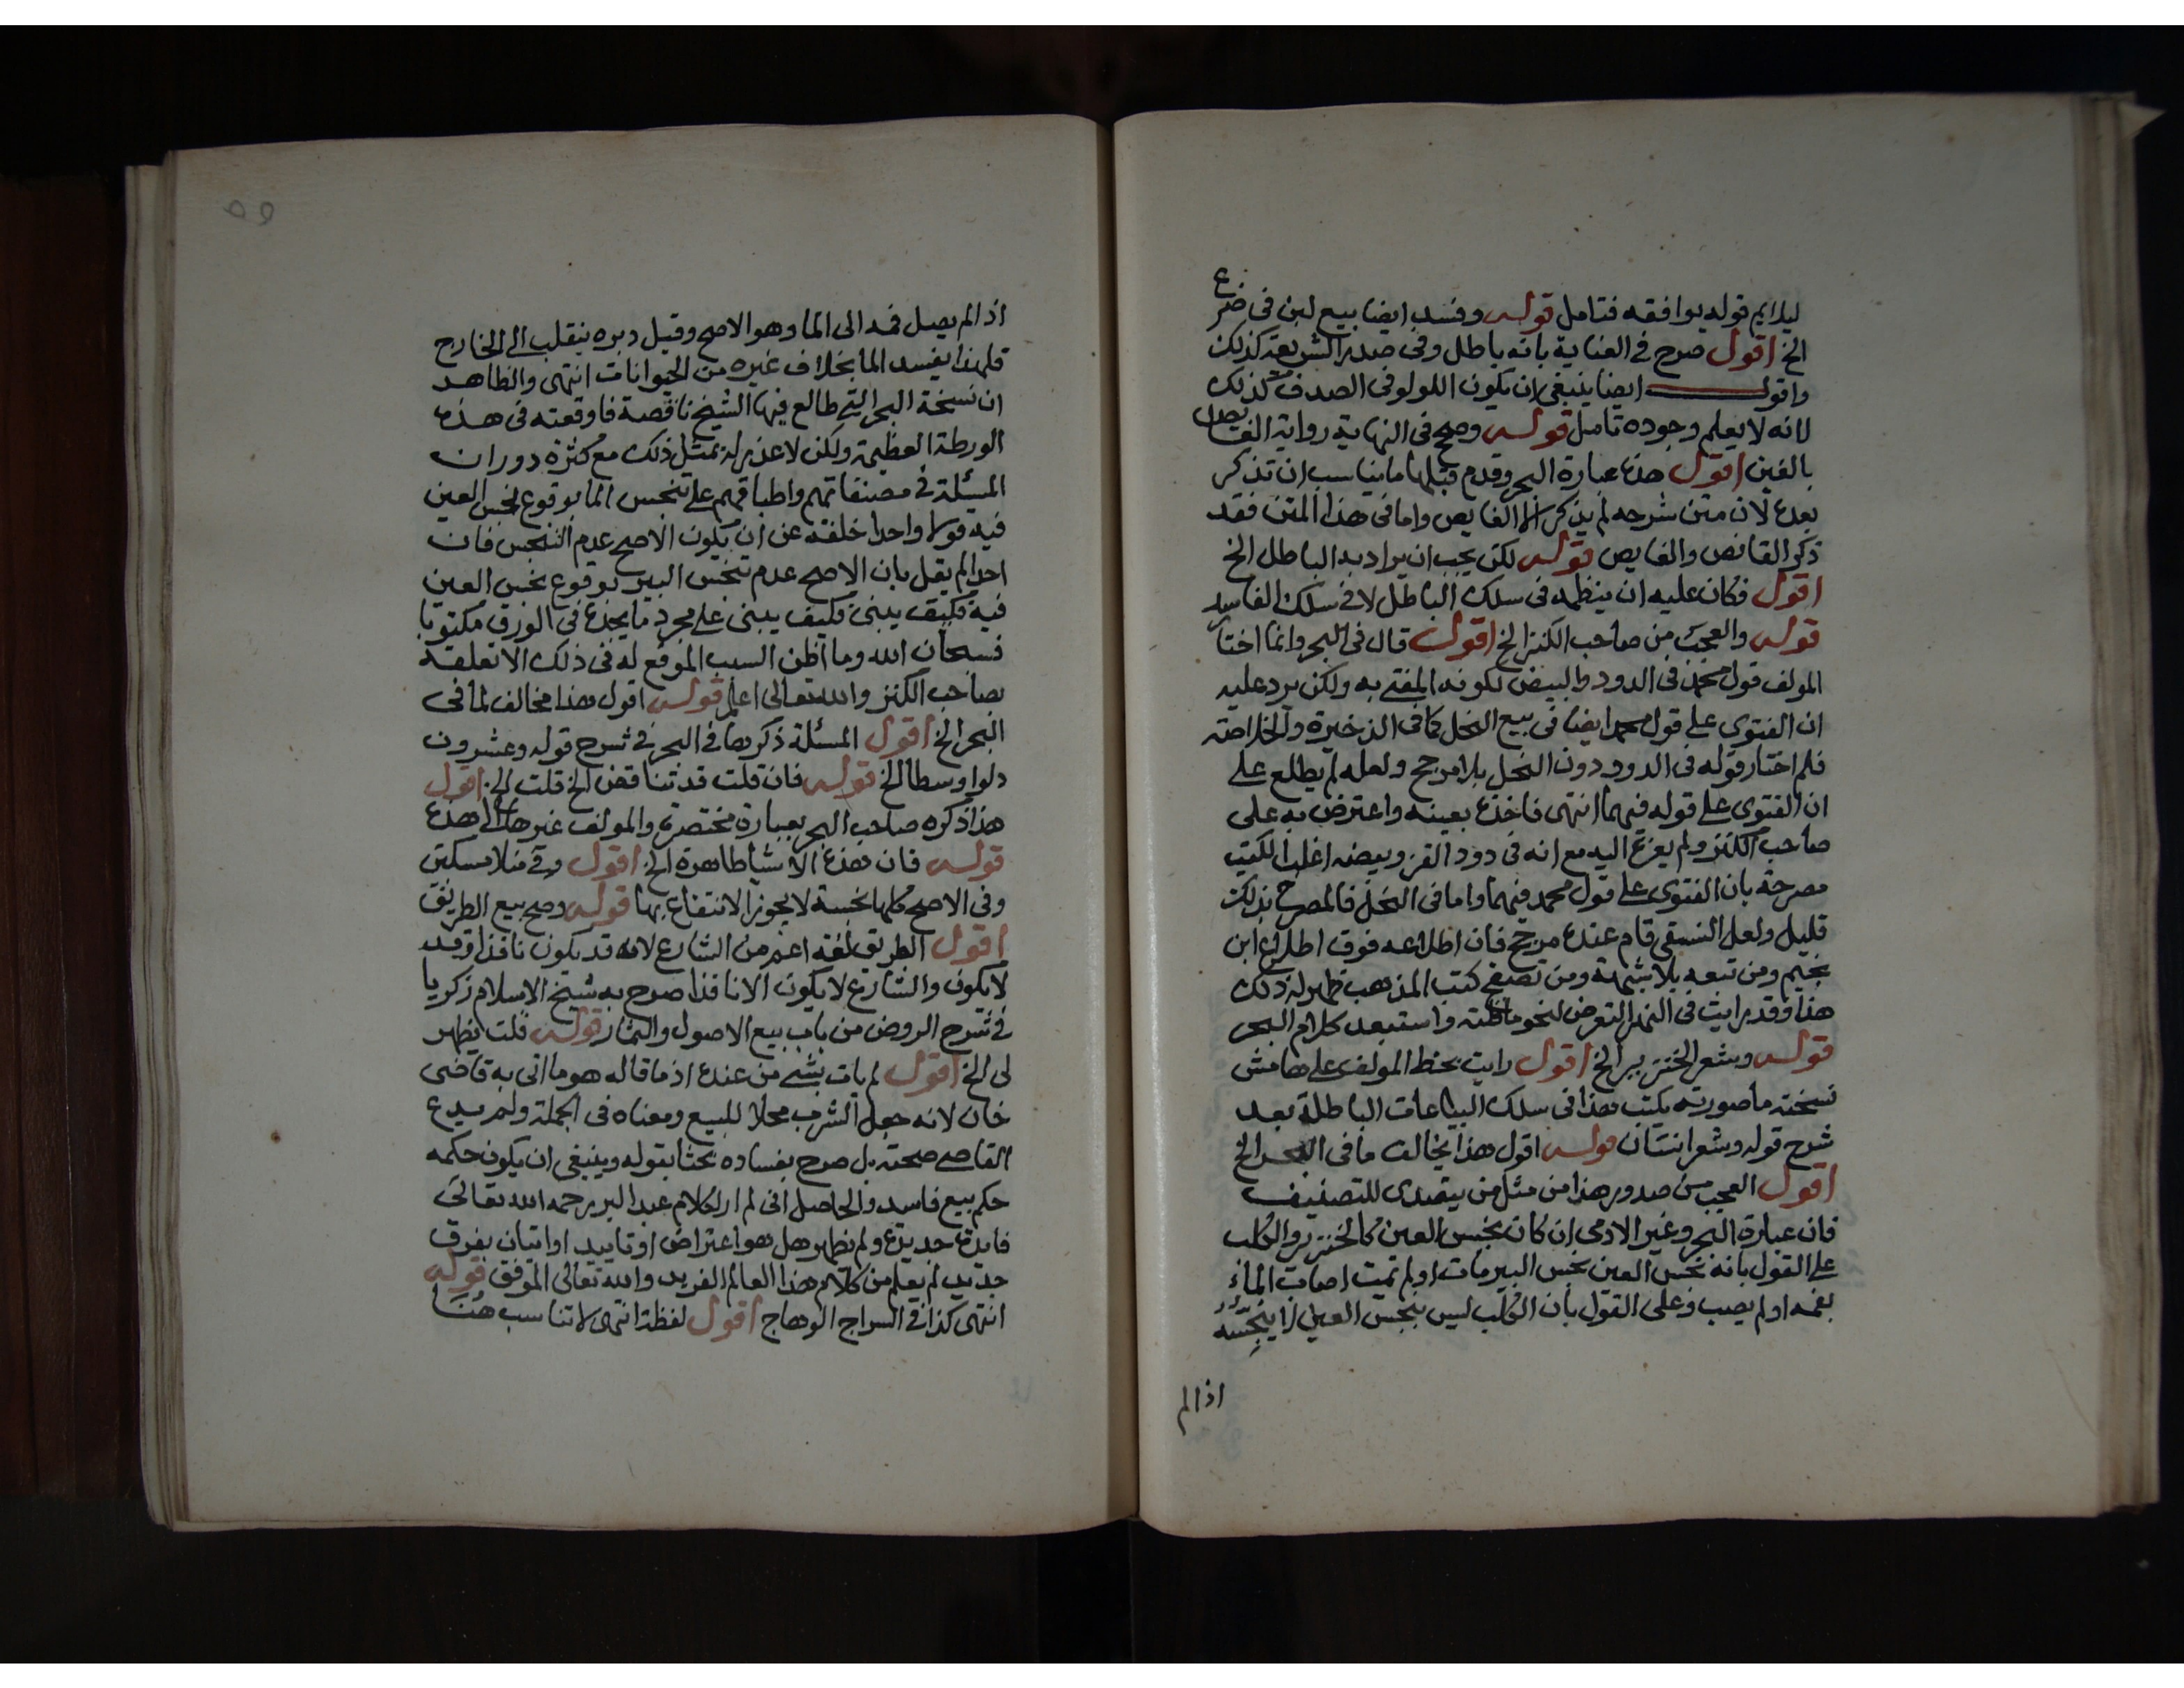 ليلايم قوله يوافقه فتامل قوله وفسد ايضا بيع لبن في ضرع
الخ اقول صرح في العناية بانه باطل وفي صدر الشريعة كذلك
واقول ايضا ينبغي ان يكون اللولو في الصدف كذلك
لانه لا يعلم وجوده تامل قوله وصحح في النهاية رواية الغايص
بالغين اقول هذه عبارة البحر وقدم قبلها ما يناسب ان تذكر
بعده لان متن شرحه لم يذكر الا الغايص واما في هذا المتن فقد
ذكر القانص والغايص قوله لكن يجب ان يراد به الباطل الخ
اقول فكان عليه ان ينظمه في سلك الباطل لا في سلك الفاسد
قوله والعجب من صاحب الكنز الخ اقول قال في البحر وانما اختار
المولف قول محمد في الدود والبيض لكونه المفتى به ولكن يرد عليه
ان الفتوى على قول محمد ايضا في بيع النحل كما في الذخيرة والخلاصة
فلم اختار قوله في الدود دون النحل بلا مرجح ولعله لم يطلع على
ان الفتوى على قوله فيهما انتهى فاخذه بعينه واعترض به على
صاحب الكنز ولم يعزه اليه مع انه في دود القز وبيضه اغلب الكتب
مصرحة بان الفتوى على قول محمد فيهما واما في النحل فالمصرح بذلك
قليل ولعل النسفي قام عنده مرجح فان اطلاعه فوق اطلاع ابن
نجيم ومن تبعه بلا شبهة ومن تصفح كتب المذهب ظهر له ذلك
هذا وقد رايت في النهر التعرض لنحو ما قلته واستبعد كلام البحر
قوله وشعر الخنزير الخ اقول رايت بخط المولف على هامش
نسخته ما صورته يكتب هذا في سلك البياعات الباطلة بعد
شرح قوله وشعر انسان قوله اقول هذا يخالف ما في البحر الخ
اقول العجب من صدور هذا من مثل من يتصدى للتصنيف
فان عبارة البحر وغير الادمي ان كان نجس العين كالخنزير والكلب
على القول بانه نجس العين نجس البير مات او لم تمت اصاب الماء
بفمه او لم يصب وعلى القول بان الكلب ليس بنجس العين لا ينجسه
اذا لم
اذا لم يصل فمه الى الما وهو الاصح وقيل دبره ينقلب الى الخارج
فلهذا يفسد الما بخلاف غيره من الحيوانات انتهى والظاهر
ان نسخة البحر التي طالع فيها الشيخ ناقصة فاوقعته في هذه
الورطة العظيمة ولكن لا عذر له بمثل ذلك مع كثرة دوران
المسئلة في مصنفاتهم واطباقهم على تنجس الما بوقوع نجس العين
فيه قولا واحدا خلقة عن ان يكون الاصح عدم التنجس فان
احدا لم يقل بان الاصح عدم تنجس البير بوقوع نجس العين
فيه فكيف يبنى فكيف يبنى على مجرد ما يجده في الورق مكتوبا
فسبحان الله وما اظن السبب الموقع له في ذلك الا تعلقه
بصاحب الكنز والله تعالى اعلم قوله اقول هذا مخالف لما في
البحر الخ اقول المسئلة ذكرها في البحر في شرح قوله وعشرون
دلوا وسطا الخ قوله فان قلت قد تناقض الخ قلت الخ اقول
هذا ذكره صاحب البحر بعبارة مختصرة والمولف غيرها الى هذه
قوله فان هذه الاشيا طاهرة الخ اقول وفي منلا مسكين
وفي الاصح كلها نجسة لا يجوز الانتفاع بها قوله وصح بيع الطريق
اقول الطريق لغة اعم من الشارع لانه قد يكون نافذا وقد
لا يكون والشارع لا يكون الا نافذا صرح به شيخ الاسلام زكريا
في شرح الروض من باب بيع الاصول والثمار قوله قلت يظهر
لي الخ اقول لم يات بشي من عنده اذ ما قاله هو ما اتى به قاضى
خان لانه جعل الشرب محلا للبيع ومعناه في الجملة ولم يدع
القاضي صحته بل صرح بفساده بحثا بقوله وينبغي ان يكون حكمه
حكم بيع فاسد والحاصل اني لم ار لكلام عبد البر رحمه الله تعالى
فايدة جديدة ولم يظهر هل هو اعتراض او تاييد او اتيان بفرق
جديد لم يعلم من كلام هذا العالم الفريد والله تعالى الموفق قوله
انتهى كذا في السراج الوهاج اقول لفظة انتهى لا تناسب هنا